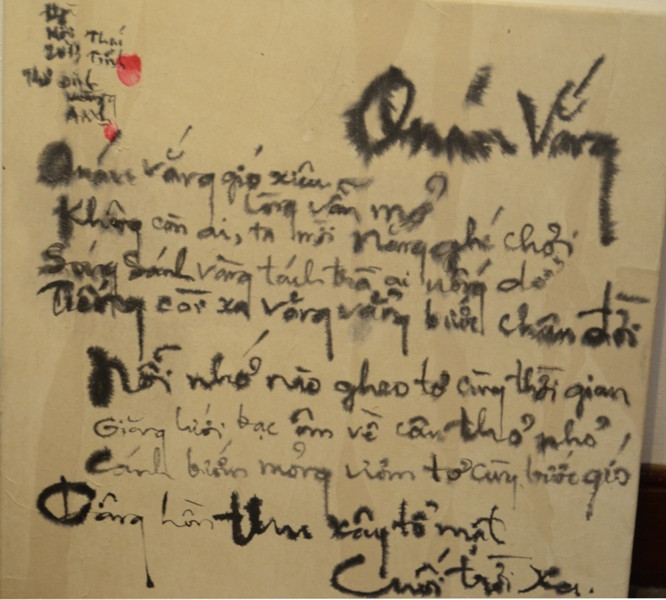 Hà Nội
Thái
2013 Tính
Thơ Đinh
Quán Vắng
Quán vắng gió xiêu lòng vẫn mở
Không còn ai, ta mời nắng ghé chơi
Sóng sánh vàng tách trà ai uống dở
Tiếng còi xa văng vẳng bước chân đời
Nỗi nhớ nào gheo tơ cùng thời gian
Giăng lưới bạc ôm về câu thơ nhỏ
Cánh buồm mỏng ươm tơ cùng bước gió
Dâng hồn xây tổ mật
Cuối trời xa.